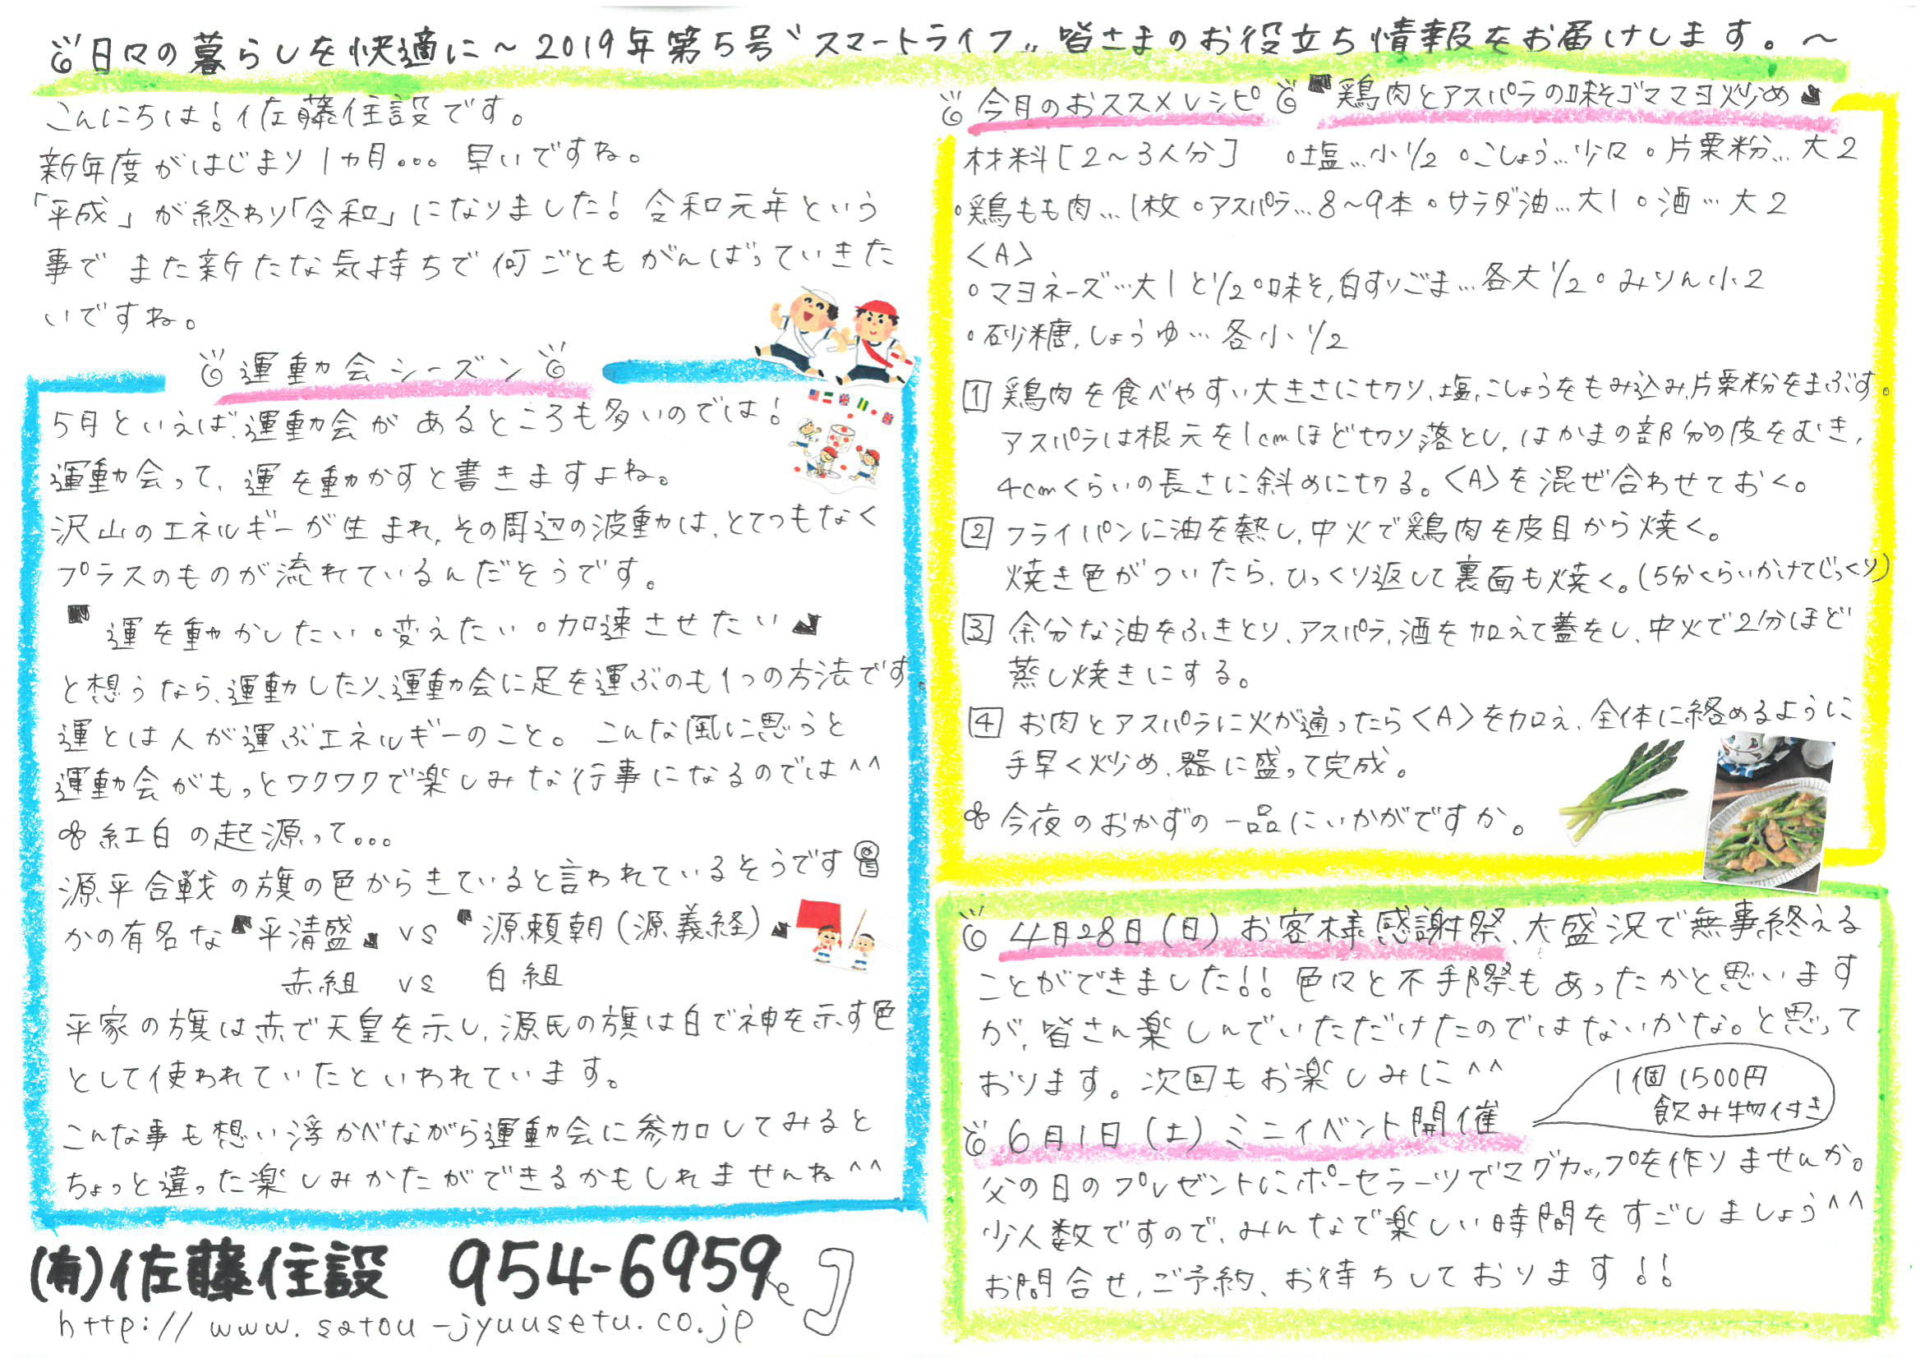 日々の暮らしを快適に～2019年第5号〝スマートライフ〟皆さまのお役立ち情報をお届けします。～
こんにちは！佐藤住設です。
新年度がはじまり1ヵ月。。。早いですね。
「平成」が終わり「令和」になりました！令和元年という
事でまた新たな気持ちで何ごともがんばっていきた
いですね。
運動会シーズン
5月といえば、運動会があるところも多いのでは！
運動会って、運を動かすと書きますよね。
沢山のエネルギーが生まれ、その周辺の波動は、とてつもなく
プラスのものが流れているんだそうです。
『運を動かしたい。変えたい。加速させたい』
と想うなら、運動したり、運動会に足を運ぶのも1つの方法です。
運とは人が運ぶエネルギーのこと。こんな風に思うと
運動会がもっとワクワクで楽しみな行事になるのでは^^
紅白の起源って。。。
源平合戦の旗の色からきていると言われているそうです
かの有名な『平清盛』vs『源頼朝（源義経）』
赤組 vs 白組
平家の旗は赤で天皇を示し、源氏の旗は白で神を示す色
として使われていたといわれています。
こんな事も想い浮かべながら運動会に参加してみると
ちょっと違った楽しみかたができるかもしれませんね^^
(有)佐藤住設 954-6959
http://www.satou-jyuusetu.co.jp
今月のおススメレシピ『鶏肉とアスパラの味そゴママヨ炒め』
材料[2～3人分] 。塩…小1/2 。こしょう…少々 。片栗粉…大2
。鶏もも肉…1枚 。アスパラ…8～9本 。サラダ油…大1 。酒…大2
〈A〉
。マヨネーズ…大1と1/2 。味そ,白すりごま…各大1/2 。みりん小2
。砂糖,しょうゆ…各小1/2
1 鶏肉を食べやすい大きさに切り、塩,こしょうをもみ込み,片栗粉をまぶす。
アスパラは根元を1cmほど切り落とし、はかまの部分の皮をむき、
4cmくらいの長さに斜めに切る。〈A〉を混ぜ合わせておく。
2 フライパンに油を熱し、中火で鶏肉を皮目から焼く。
焼き色がついたら、ひっくり返して裏面も焼く。(5分くらいかけてじっくり)
3 余分な油をふきとり、アスパラ,酒を加えて蓋をし、中火で2分ほど
蒸し焼きにする。
4 お肉とアスパラに火が通ったら〈A〉を加え、全体に絡めるように
手早く炒め、器に盛って完成。
今夜のおかずの一品にいかがですか。
4月28日(日)お客様感謝祭、大盛況で無事終える
ことができました!!色々と不手際もあったかと思います
が、皆さん楽しんでいただけたのではないかな。と思って
おります。次回もお楽しみに^^
1個1500円
飲み物付き
6月1日(土)ミニイベント開催
父の日のプレゼントにポーセラーツでマグカップを作りませんか。
少人数ですので、みんなで楽しい時間をすごしましょう^^
お問合せ,ご予約、お待ちしております!!